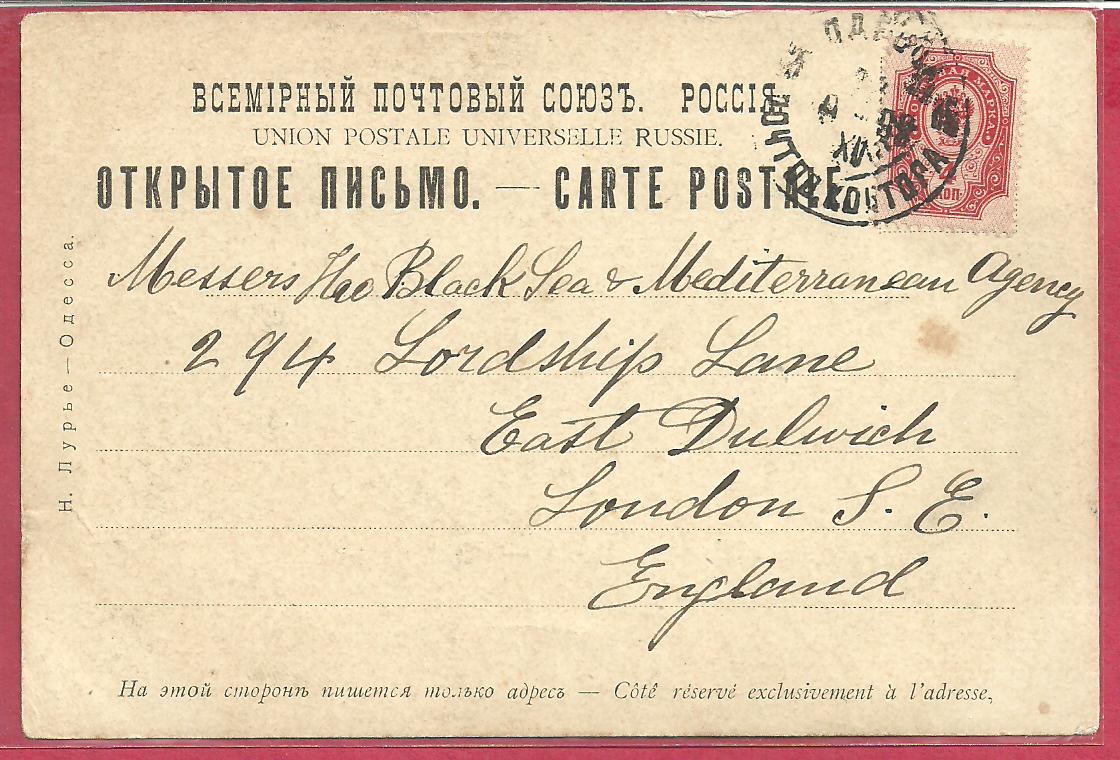 ВСЕМІРНЫЙ ПОЧТОВЫЙ СОЮЗЪ. РОССІЯ
UNION POSTALE UNIVERSELLE RUSSIE.
ОТКРЫТОЕ ПИСЬМО. — CARTE POSTALE
ПОЧТОВ. КОНТОРА
МАРКА
4
КОП.
Messers The Black Sea & Mediterranean Agency
294 Lordship Lane
East Dulwich
London S. E.
England
Н. Лурье — Одесса.
На этой сторонѣ пишется только адресъ — Côté réservé exclusivement à l'adresse,